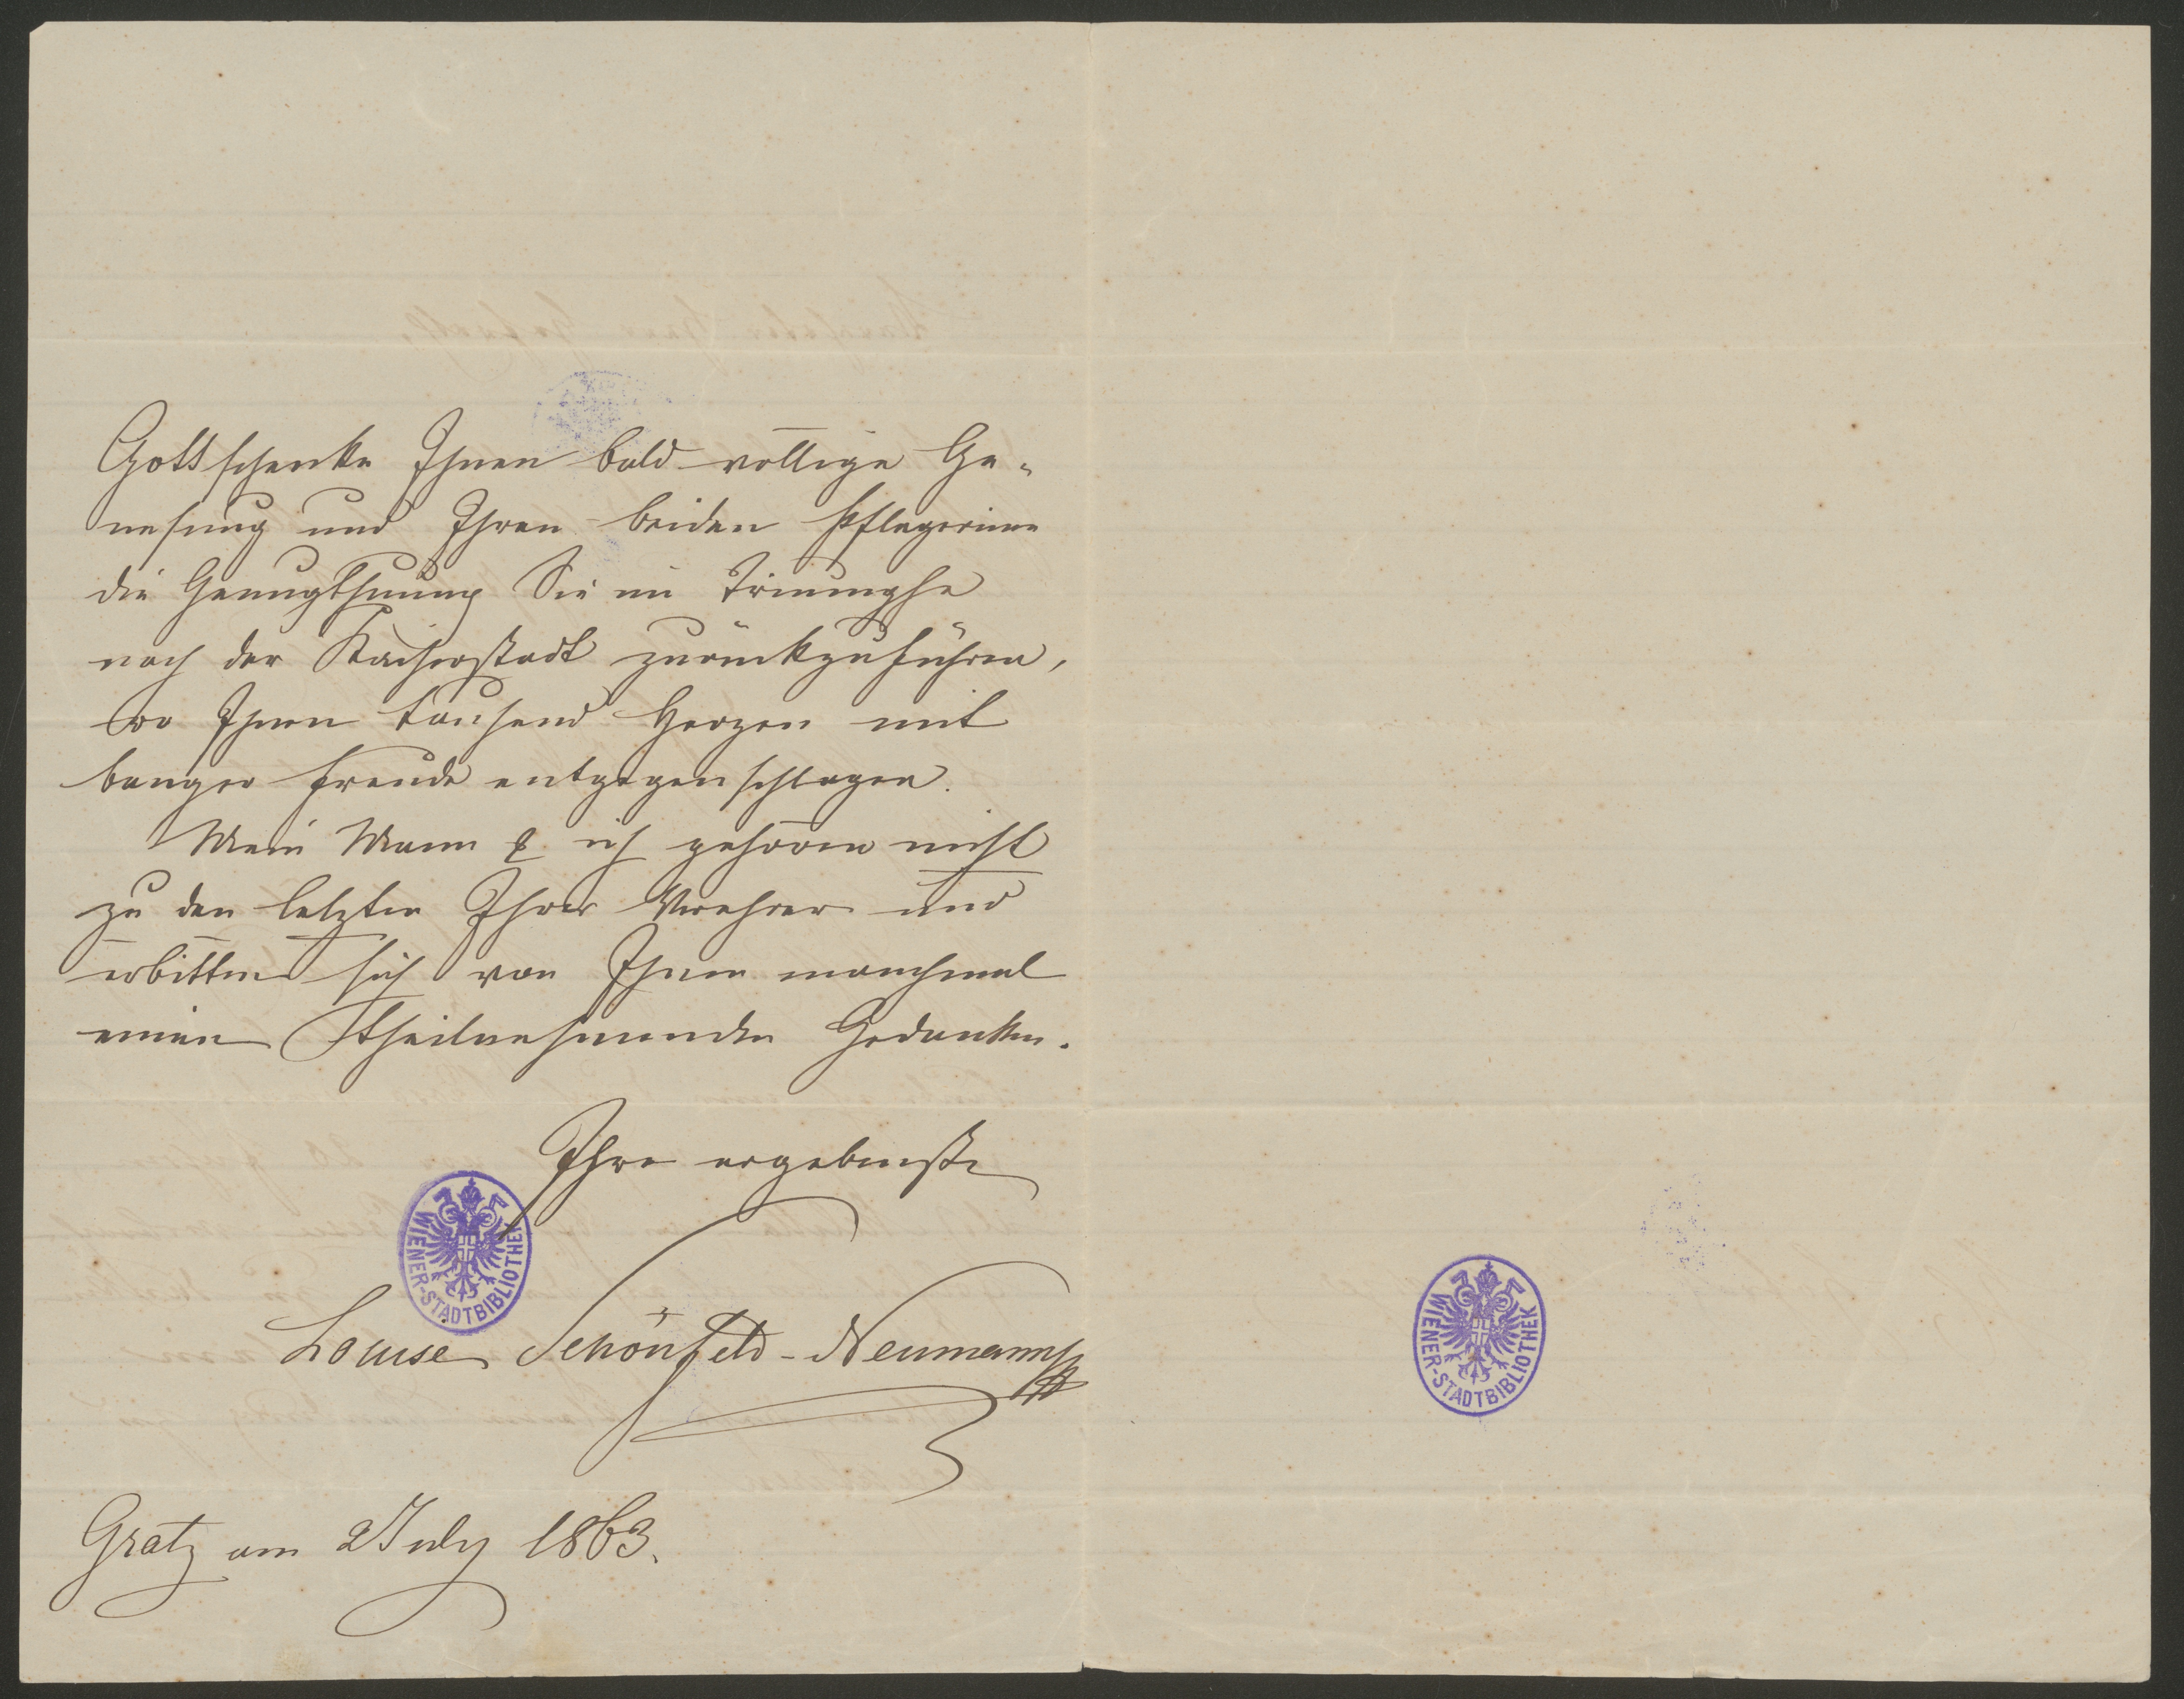 Gott schenke Ihnen bald völlige Ge-
nesung und Ihren beiden Pflegerinen
die Genugthuung Sie im Triumphe
nach der Kaiserstadt zurückzuführen,
wo Ihnen tausend Herzen mit
banger Freude entgegenschlagen.
Mein Mann & ich gehören nicht
zu den letzten Ihrer Verehrer und
erbitten sich von Ihnen manchmal
einen theilnehmenden Gedanken.
Ihre ergebenste
WIENER-STADTBIBLIOTHEK
Louise Schönfeld-Neumann
Gratz am 2 July 1863.
WIENER-STADTBIBLIOTHEK